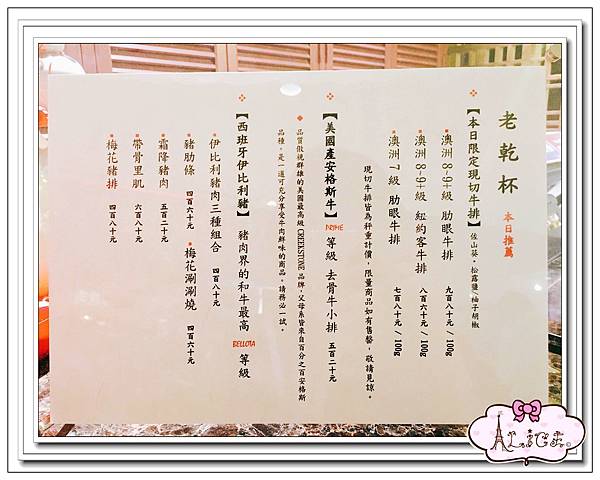 老乾杯 本日推薦
【本日限定現切牛排】 佐山葵。松露鹽/柚子胡椒
澳洲 8~9+級 肋眼牛排 九百八十元 / 100g
澳洲 8~9+級 紐約客牛排 八百六十元 / 100g
澳洲 7級 肋眼牛排 七百八十元 / 100g
現切牛排皆為秤重計價，限量商品如有售罄，敬請見諒。
【美國產安格斯牛】 PRIME 等級 去骨牛小排 五百二十元
品質傲視群雄的美國最高級 CREEKSTONE 品牌，父母系皆來自百分之百安格斯
品種，是一道可充分享受牛肉鮮味的商品，請務必一試。
【西班牙伊比利豬】 豬肉界的和牛最高 BELLOTA 等級
伊比利豬肉三種組合 四百八十元
豬肋條 四百六十元 梅花涮涮燒 四百六十元
霜降豬肉 五百二十元
帶骨里肌 六百八十元
梅花豬排 四百八十元
ALICE